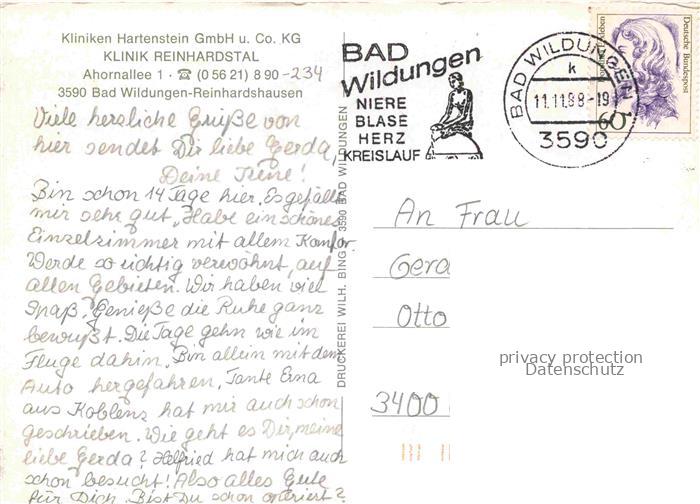 Kliniken Hartenstein GmbH u. Co. KG
KLINIK REINHARDSTAL
Ahornallee 1 · ☎ (0 56 21) 8 90 -234
3590 Bad Wildungen-Reinhardshausen
Viele herzliche Grüße von
hier sendet Dir liebe Gerda,
Deine Irene!
Bin schon 14 Tage hier. Es gefällt
mir sehr gut. Habe ein schönes
Einzelzimmer mit allem Komfor
Werde so richtig verwöhnt, auf
allen Gebieten. Wir haben viel
Spaß. Genieße die Ruhe ganz
bewußt. Die Tage gehn wie im
Fluge dahin. Bin allein mit dem
Auto hergefahren. Tante Erna
aus Koblenz hat mir auch schon
geschrieben. Wie geht es Dir, meine
liebe Gerda? Helfried hat mich auch
schon besucht! Also alles Gute
für Dich. Bist Du schon operiert?
DRUCKEREI WILH. BING 3590 BAD WILDUNGEN
BAD
Wildungen
NIERE
BLASE
HERZ
KREISLAUF
BAD WILDUNGEN
k
11.11.88-19
3590
Deutsche Bundespost
60
An Frau
Gera
Otto
3400
privacy protection
Datenschutz